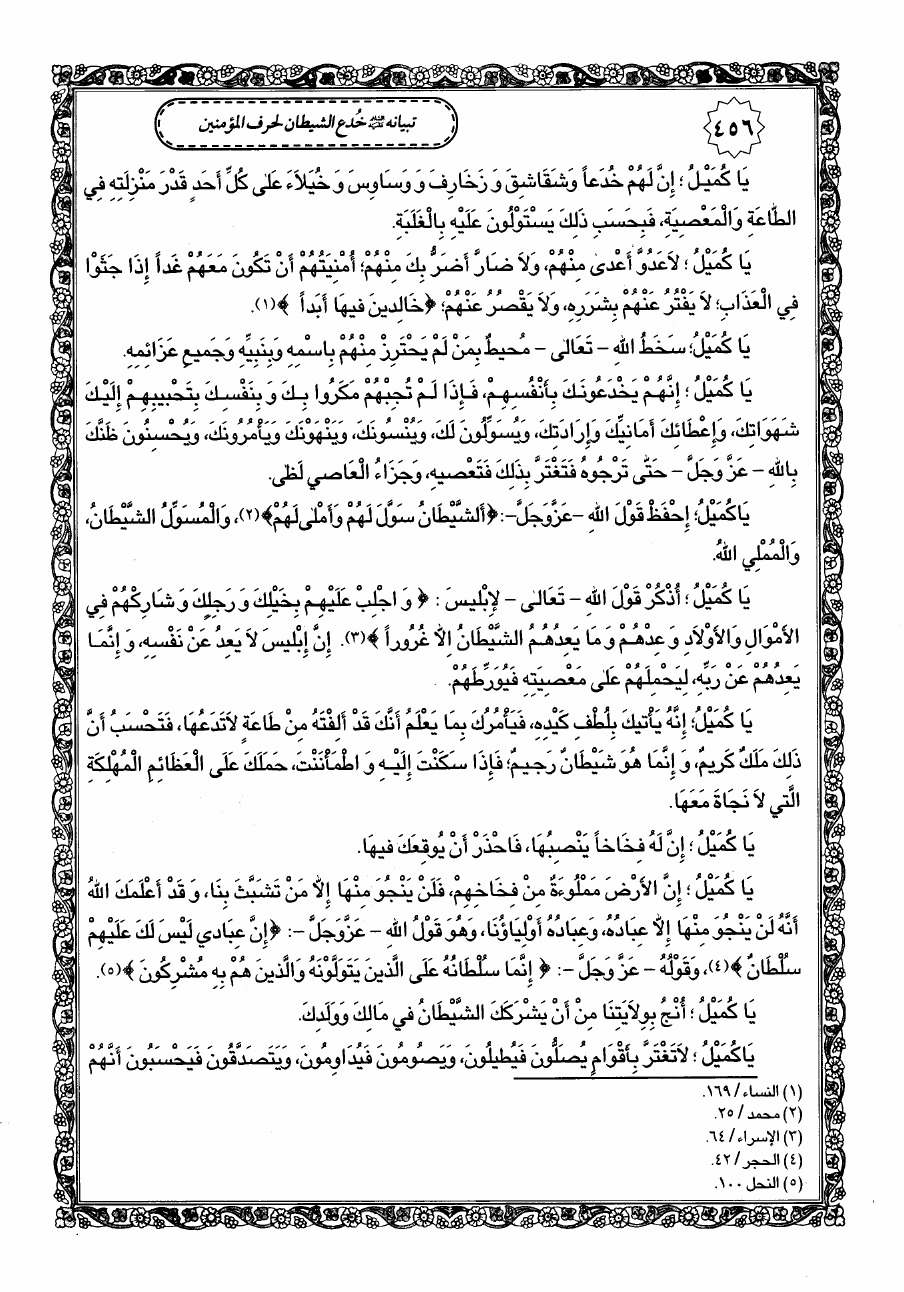 ٤٥٦
تبيانه عليه السلام خُدع الشيطان لحرف المؤمنين
يَا كُمَيْلُ ؛ إِنَّ لَهُمْ خُدَعاً وَشَقَاشِقَ وَ زَخَارِفَ وَ وَسَاوِسَ وَ خُيَلاَءَ عَلىٰ كُلِّ أَحَدٍ قَدْرَ مَنْزِلَتِهِ فِي
الطَّاعَةِ وَالْمَعْصِيَةِ، فَبِحَسَبِ ذَلِكَ يَسْتَوْلُونَ عَلَيْهِ بِالْغَلَبَةِ.
يَا كُمَيْلُ ؛ لاَعَدُوَّ أَعْدىٰ مِنْهُمْ، وَلاَ ضَارَّ أَضَرُّ بِكَ مِنْهُمْ؛ أُمْنِيَتُهُمْ أَنْ تَكُونَ مَعَهُمْ غَداً إِذَا جَثَوْا
فِي الْعَذَابِ؛ لاَ يَفْتُرُ عَنْهُمْ بِشَرَرِهِ، وَلاَ يَقْصُرُ عَنْهُمْ؛ ﴿خَالِدِينَ فِيهَا أَبَداً ﴾(١).
يَا كُمَيْلُ؛ سَخَطُ اللهِ – تَعَالى – مُحيطٌ بِمَنْ لَمْ يَحْتَرِزْ مِنْهُمْ بِاسْمِهِ وَبِنَبِيِّهِ وَجَمِيعِ عَزَائِمِهِ.
يَا كُمَيْلُ ؛ إِنَّهُمْ يَخْدَعُونَكَ بِأَنْفُسِهِمْ، فَإِذَا لَمْ تُجِبْهُمْ مَكَرُوا بِكَ وَ بِنَفْسِكَ بِتَحْبِيبِهِمْ إِلَيْكَ
شَهَوَاتِكَ، وَإِعْطَائِكَ أَمَانِيِّكَ وَإِرَادَتِكَ، وَيُسَوِّلُونَ لَكَ، وَيُنْسُونَكَ، وَيَنْهَوْنَكَ وَيَأْمُرُونَكَ، وَيُحْسِنُونَ ظَنَّكَ
بِاللهِ – عَزَّ وَجَلَّ – حَتّٰى تَرْجُوهُ فَتَغْتَرَّ بِذَلِكَ فَتَعْصِيهِ، وَجَزَاءُ الْعَاصِي لَظٰى.
يَاكُمَيْلُ؛ إِحْفَظْ قَوْلَ اللهِ –عَزَّوَجَلَّ–:﴿أَلشَّيْطَانُ سَوَّلَ لَهُمْ وَأَمْلٰى لَهُمْ﴾(٢)، وَالْمُسَوِّلُ الشَّيْطَانُ،
وَالْمُمْلِي اللهُ.
يَا كُمَيْلُ ؛ أُذْكُرْ قَوْلَ اللهِ – تَعَالى – لإِبْلِيسَ : ﴿ وَ اجْلِبْ عَلَيْهِمْ بِخَيْلِكَ وَ رَجِلِكَ وَ شَارِكْهُمْ فِي
الأَمْوَالِ وَالأَوْلاَدِ وَ عِدْهُمْ وَ مَا يَعِدُهُمُ الشَّيْطَانُ إِلاَّ غُرُوراً ﴾(٣). إِنَّ إِبْلِيسَ لاَ يَعِدُ عَنْ نَفْسِهِ، وَ إِنَّمَا
يَعِدُهُمْ عَنْ رَبِّهِ، لِيَحْمِلَهُمْ عَلىٰ مَعْصِيَتِهِ فَيُوَرِّطَهُمْ.
يَا كُمَيْلُ؛ إِنَّهُ يَأْتِيكَ بِلُطْفِ كَيْدِهِ، فَيَأْمُرُكَ بِمَا يَعْلَمُ أَنَّكَ قَدْ أَلِفْتَهُ مِنْ طَاعَةٍ لاَتَدَعُهَا، فَتَحْسَبُ أَنَّ
ذَلِكَ مَلَكٌ كَرِيمٌ، وَ إِنَّمَا هُوَ شَيْطَانٌ رَجِيمٌ؛ فَإِذَا سَكَنْتَ إِلَيْهِ وَ اطْمَأْنَنْتَ، حَمَلَكَ عَلَى الْعَظَائِمِ الْمُهْلِكَةِ
الَّتي لاَ نَجَاةَ مَعَهَا.
يَا كُمَيْلُ ؛ إِنَّ لَهُ فِخَاخاً يَنْصِبُهَا، فَاحْذَرْ أَنْ يُوقِعَكَ فِيهَا.
يَا كُمَيْلُ ؛ إِنَّ الأَرْضَ مَمْلُوءَةٌ مِنْ فِخَاخِهِمْ، فَلَنْ يَنْجُوَ مِنْهَا إِلاَّ مَنْ تَشَبَّثَ بِنَا، وَ قَدْ أَعْلَمَكَ اللهُ
أَنَّهُ لَنْ يَنْجُوَ مِنْهَا إِلاَّ عِبَادُهُ، وَعِبَادُهُ أَوْلِيَاؤُنَا، وَهُوَ قَوْلُ اللهِ – عَزَّوَجَلَّ –: ﴿إِنَّ عِبَادِي لَيْسَ لَكَ عَلَيْهِمْ
سُلْطَانٌ ﴾(٤)، وَقَوْلُهُ – عَزَّ وَجَلَّ –: ﴿ إِنَّمَا سُلْطَانُهُ عَلَى الَّذِينَ يَتَوَلَّوْنَهُ وَالَّذِينَ هُمْ بِهِ مُشْرِكُونَ ﴾(٥).
يَا كُمَيْلُ ؛ أُنْجُ بِوِلاَيَتِنَا مِنْ أَنْ يَشْرَكَكَ الشَّيْطَانُ فِي مَالِكَ وَوَلَدِكَ.
يَاكُمَيْلُ ؛ لاَتَغْتَرَّ بِأَقْوَامٍ يُصَلُّونَ فَيُطِيلُونَ، وَيَصُومُونَ فَيُدَاوِمُونَ، وَيَتَصَدَّقُونَ فَيَحْسَبُونَ أَنَّهُمْ
(١) النساء / ١٦٩.
(٢) محمد / ٢٥.
(٣) الإسراء / ٦٤.
(٤) الحجر / ٤٢.
(٥) النحل ١٠٠.